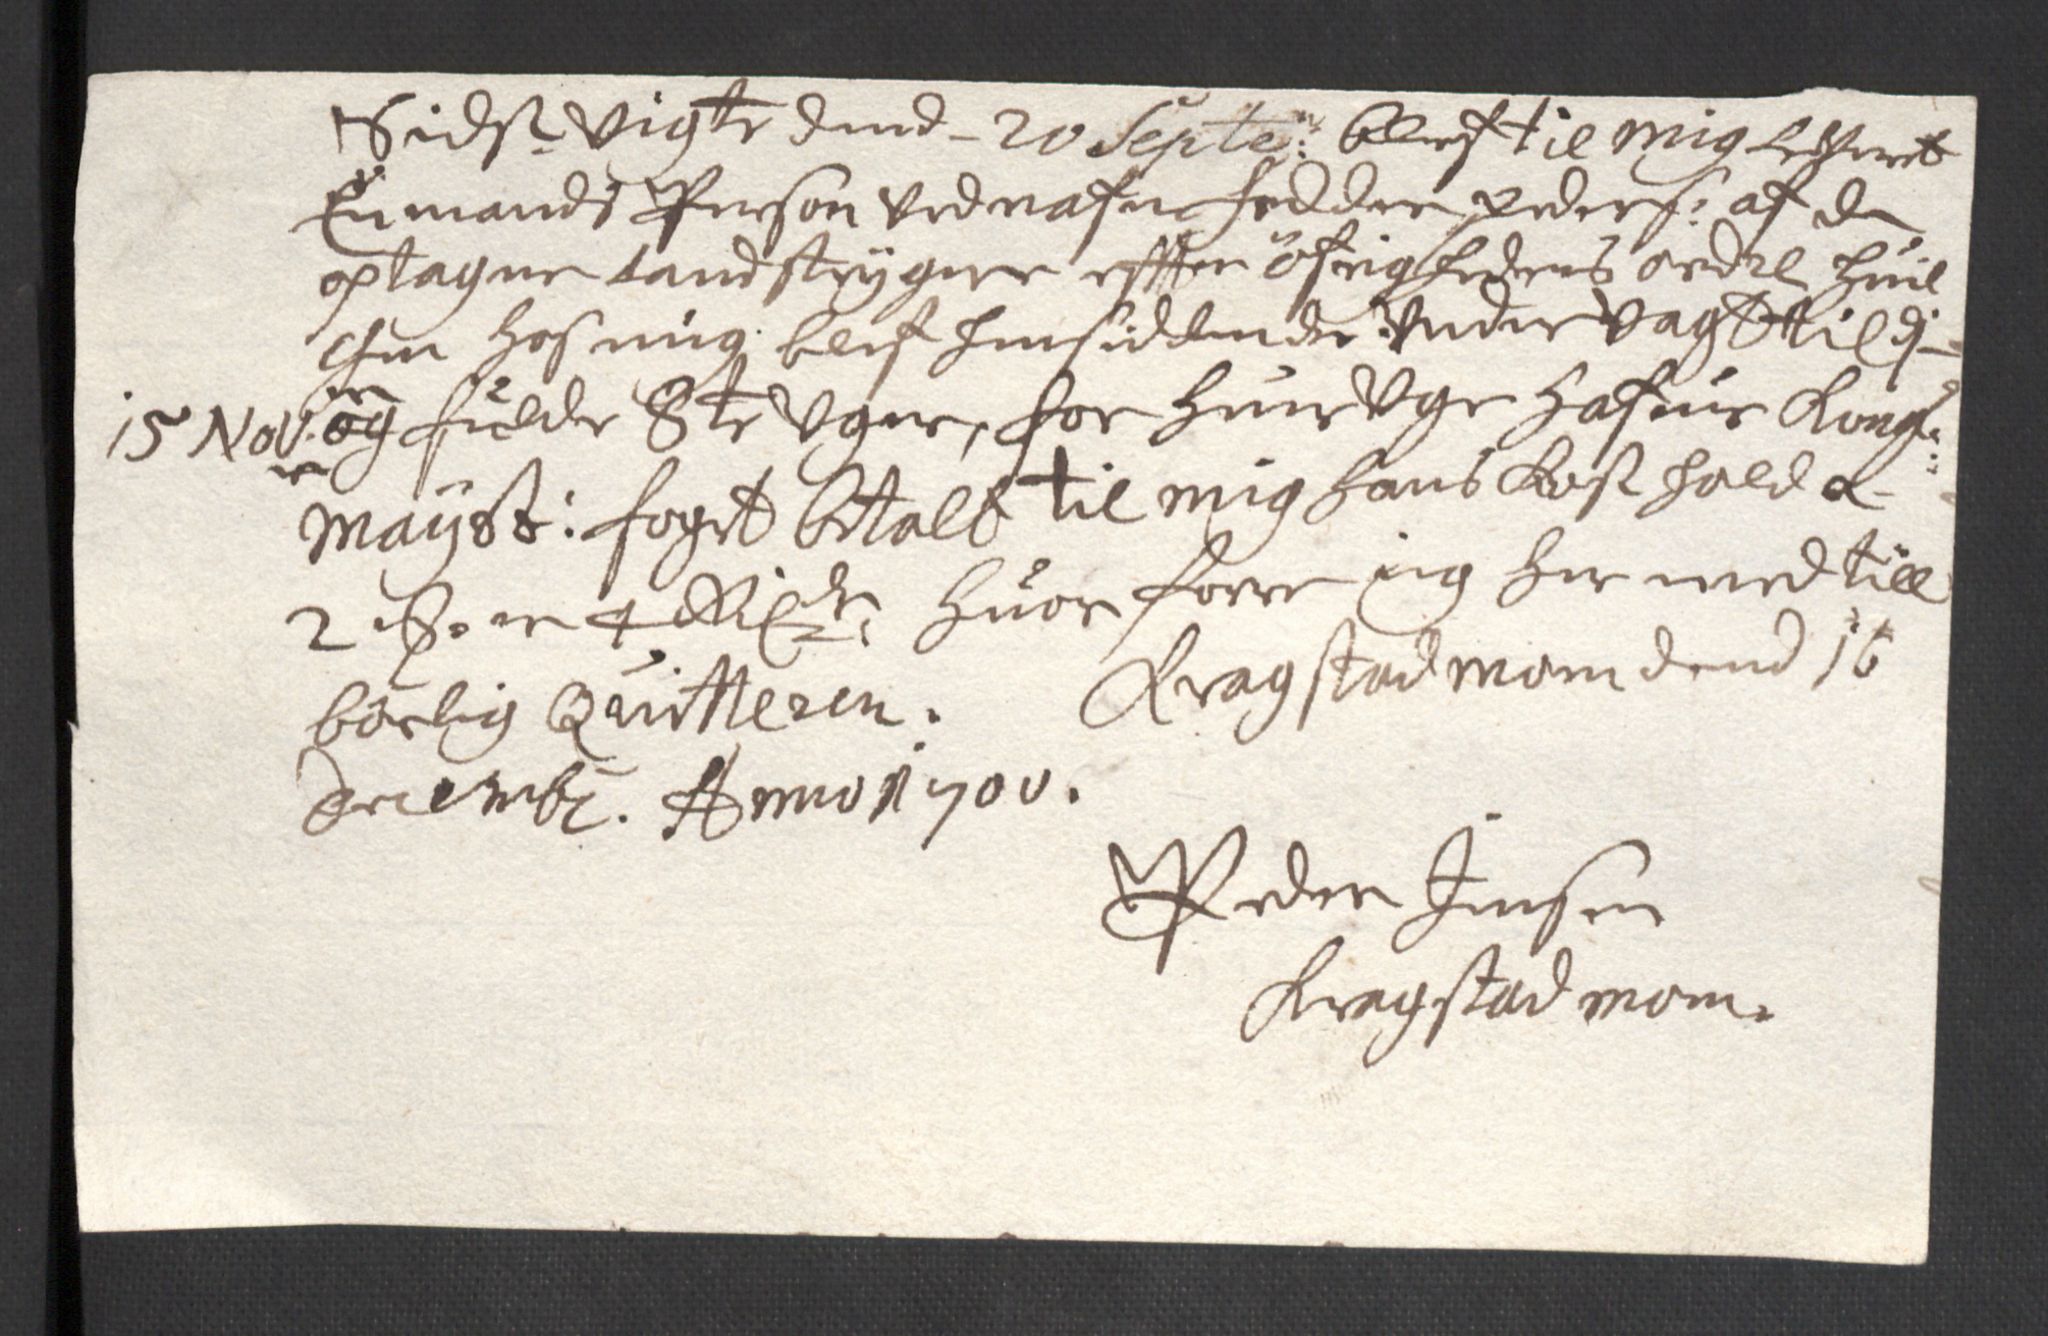 Sidst: Vigte dend – 20 Septem: blef til mig lefveret
En mands Person Ved nafn Fedder peders: af de
optagne Landstrÿgere effter öfrighedens ordre huil
chen hos mig blef hensiddende under Vagt til d:
15 Nov: er og fulde 8te Uger, for huer Uge hafuer Kongl:
Maÿtt: foget betalt til mig hans Kost hold a
2 er 4 Rixdr: huor forre ieg her med till
börlig Quitteren. Kragstad moen dend 16
Decembr. Anno 1700.
Peder Jensen
Kragstad moen.